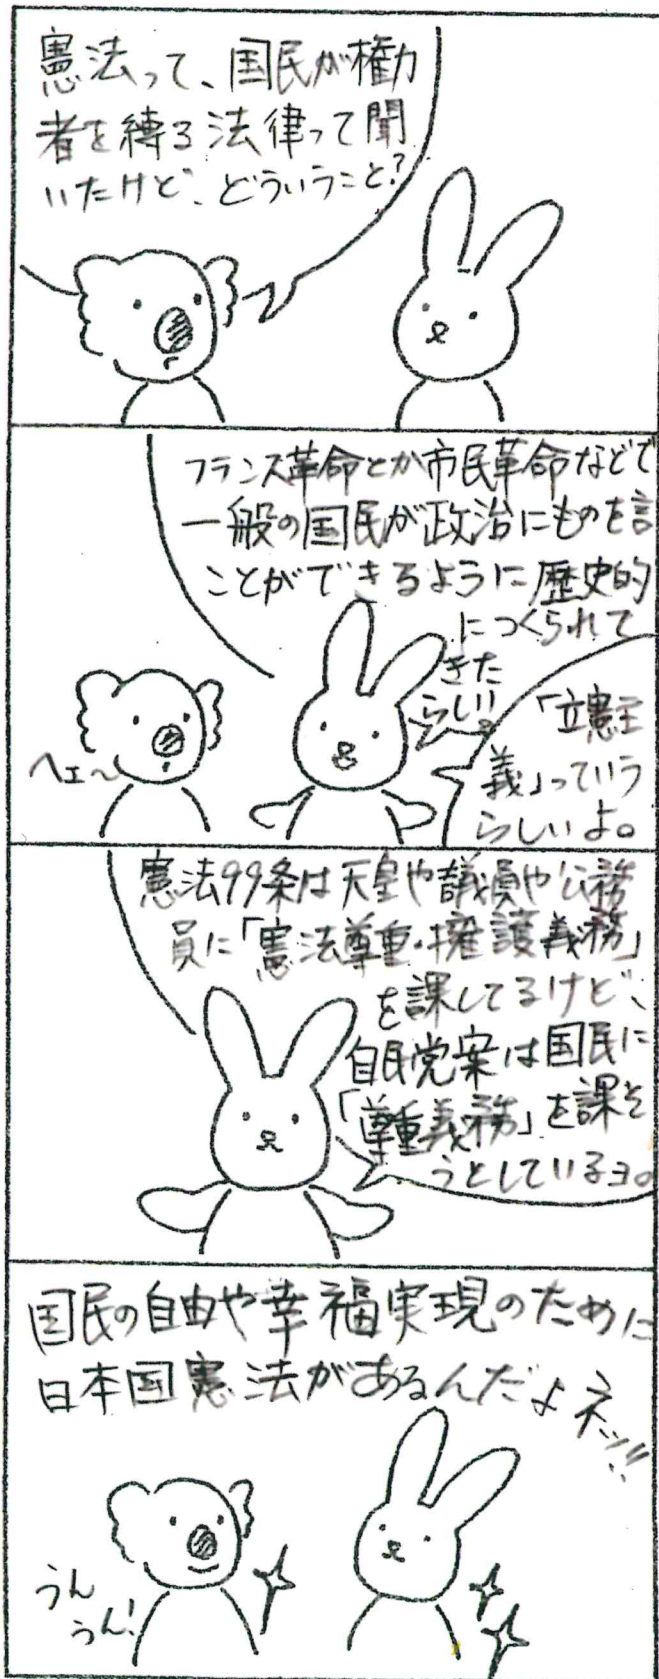 憲法って、国民が権力
者を縛る法律って聞
いたけど、どういうこと?
フランス革命とか市民革命などで
一般の国民が政治にものを言
ことができるように歴史的
につくられて
きた
らしい。
ヘェ〜
「立憲主
義」っていう
らしいよ。
憲法99条は天皇や議員や公務
員に「憲法尊重・擁護義務」
を課してるけど、
自民党案は国民に
「尊重義務」を課そ
うとしているヨ。
国民の自由や幸福実現のために
日本国憲法があるんだよネッ!!
うん
うん!